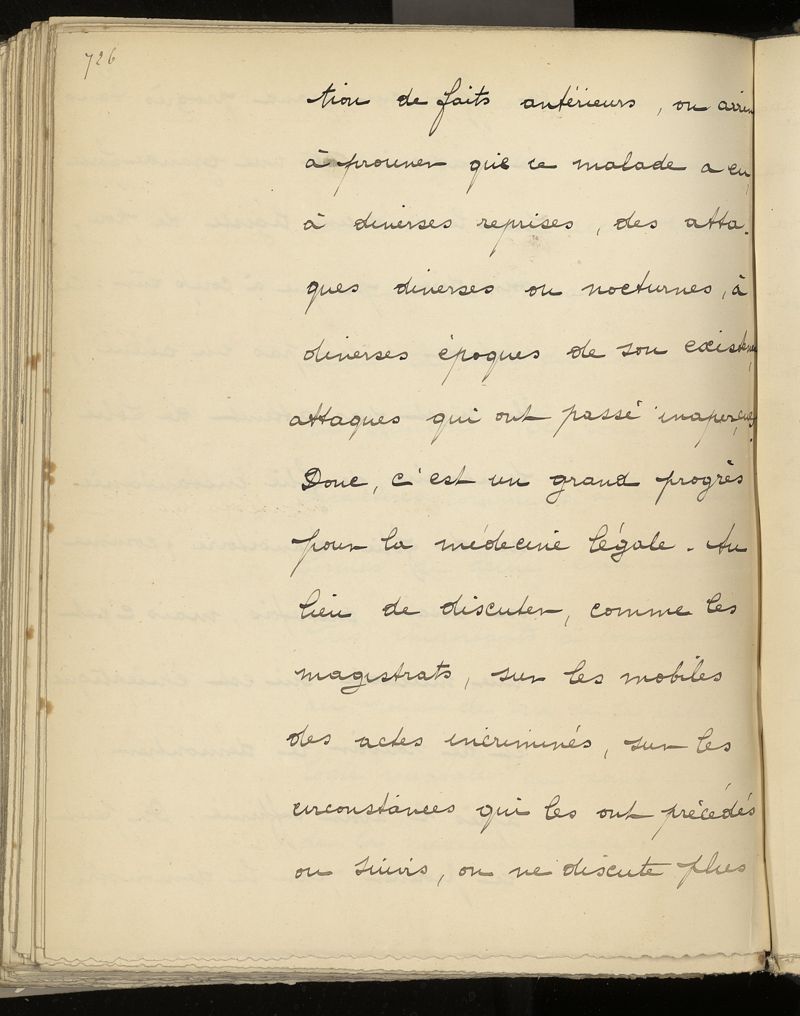 726
tion de faits antérieurs, on arrive
à prouver que ce malade a eu,
à diverses reprises, des atta-
ques diverses ou nocturnes, à
diverses époques de son existence,
attaques qui ont passé inaperçues.
Donc, c'est un grand progrès
pour la médecine légale. Au
lieu de discuter, comme les
magistrats, sur les mobiles
des actes incriminés, sur les
circonstances qui les ont précédés
ou suivis, on ne discute plus